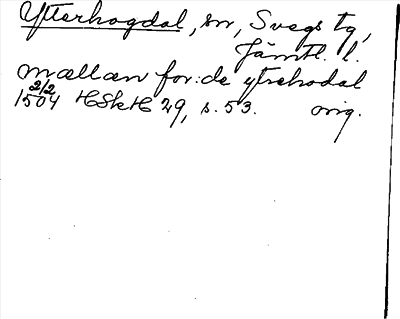 Ytterhogdal, sn, Svegs tg,
Jämtl. l.
mællæn for:de ytrehodal
2/2
1504 HSkH 29, s. 53. orig.